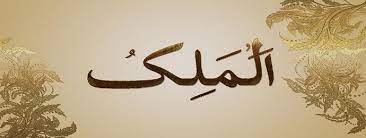 اَلْمَلِکُ